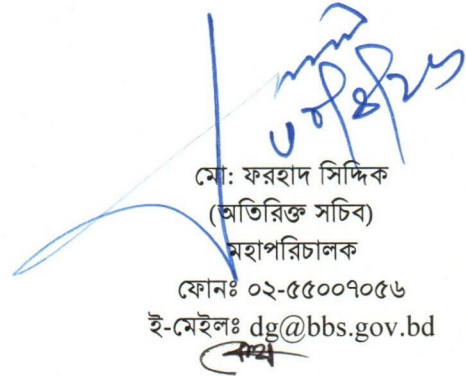 মো: ফরহাদ সিদ্দিক
(অতিরিক্ত সচিব)
মহাপরিচালক
ফোনঃ ০২-৫৫০০৭০৫৬
ই-মেইলঃ dg@bbs.gov.bd